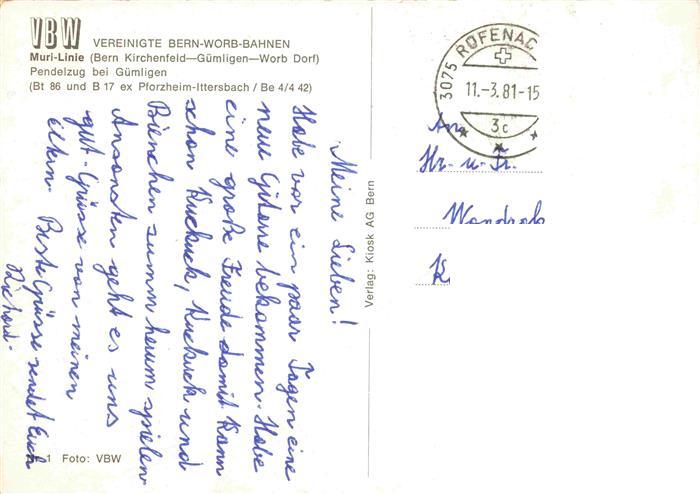 VBW VEREINIGTE BERN-WORB-BAHNEN
Muri-Linie (Bern Kirchenfeld—Gümligen—Worb Dorf)
Pendelzug bei Gümligen
(Bt 86 und B 17 ex Pforzheim-Ittersbach / Be 4/4 42)
Meine Lieben!
Habe vor ein paar Tagen eine
neue Gitarre bekommen. Habe
eine große Freude damit. Kann
schon Kuckuck, Kuckuck und
Bienchen summ herum spielen.
Ansonsten geht es uns
gut. Grüsse von meinen
Eltern. Beste Grüsse sendet Euch
Richard.
1 Foto: VBW
Verlag: Kiosk AG Bern
3075 RÜFENAC
11.-3.81-15
3c
An
Hr. u. Fr.
K